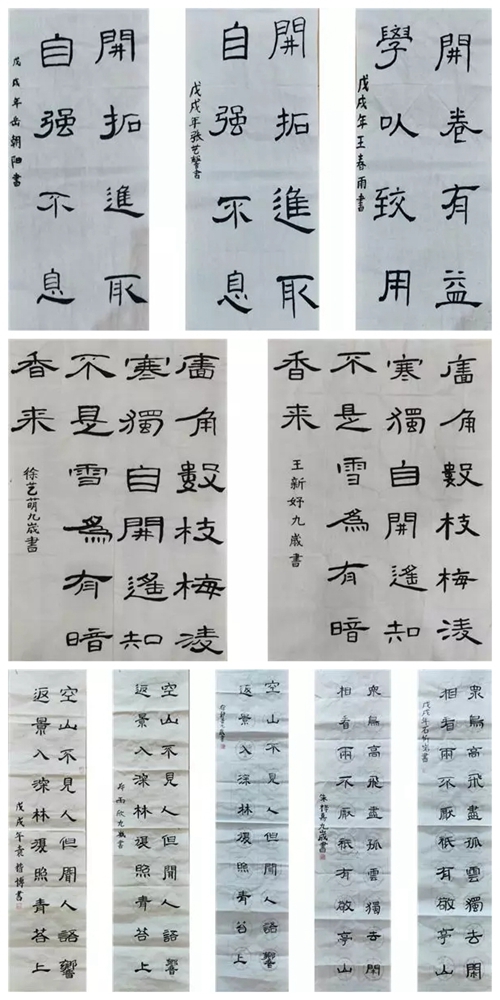 開拓進取
自强不息
戊戌年岳朝阳書
開拓進取
自强不息
戊戌年张艺馨書
開卷有益
學以致用
戊戌年王春雨書
廧角數枝梅凌
寒獨自開遥知
不是雪爲有暗
香来
徐艺萌九歲書
廧角數枝梅凌
寒獨自開遥知
不是雪爲有暗
香来
王新妤九歲書
空山不見人但聞人語響
返景入深林復照青苔上
戊戌年袁楷博書
空山不見人但聞人語響
返景入深林復照青苔上
雨欣九歲書
空山不見人但聞人語響
返景入深林復照青苔上
衆鳥高飛盡孤雲獨去閑
相看兩不厭祇有敬亭山
九歲書
衆鳥高飛盡孤雲獨去閑
相看兩不厭祇有敬亭山
戊戌年石書